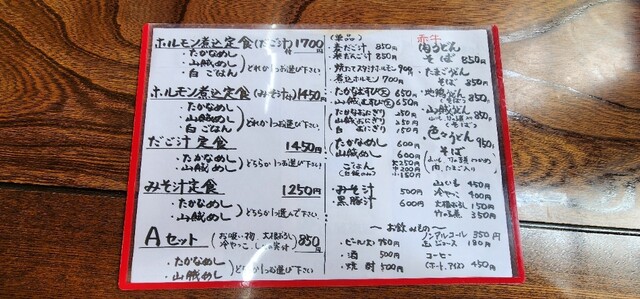 ホルモン煮込定食(だご汁付)1700円
・たかなめし
・山賊めし
・白ごはん
どれか1つお選び下さい
ホルモン煮込定食(みそ汁付)1450円
・たかなめし
・山賊めし
・白ごはん
どれか1つお選び下さい
だご汁定食 1450円
・たかなめし
・山賊めし
どちらか1つお選び下さい
みそ汁定食 1250円
・たかなめし
・山賊めし
どちらか1つ選んで下さい
Aセット (お吸い物 大根おろし 冷やっこ) 850円
・たかなめし
・山賊めし
どれか1つお選び下さい
(単品)
だご汁 850円
だご汁 850円
ホルモン 900円
・煮込ホルモン 700円
・たかなむすび 650円
・山賊むすび 650円
・たかなおにぎり 250円
・山賊おにぎり 250円
・白おにぎり 150円
・たかなめし 600円
・山賊めし 600円
・ごはん 大250円 中200円 小150円
・みそ汁 500円
・黒豚汁 600円
赤牛
肉うどん
そば 850円
・たまごうどん
そば
・地鶏うどん
そば 850円
・山賊うどん
850円
色々うどん
そば
山いも 450円
冷やっこ 400円
大根おろし 150円
350円
～お飲みもの～
・ビール 750円
・酒 500円
・焼酎 500円
ノンアルコール 350円
缶ジュース 180円
コーヒー
(ホット、アイス) 450円